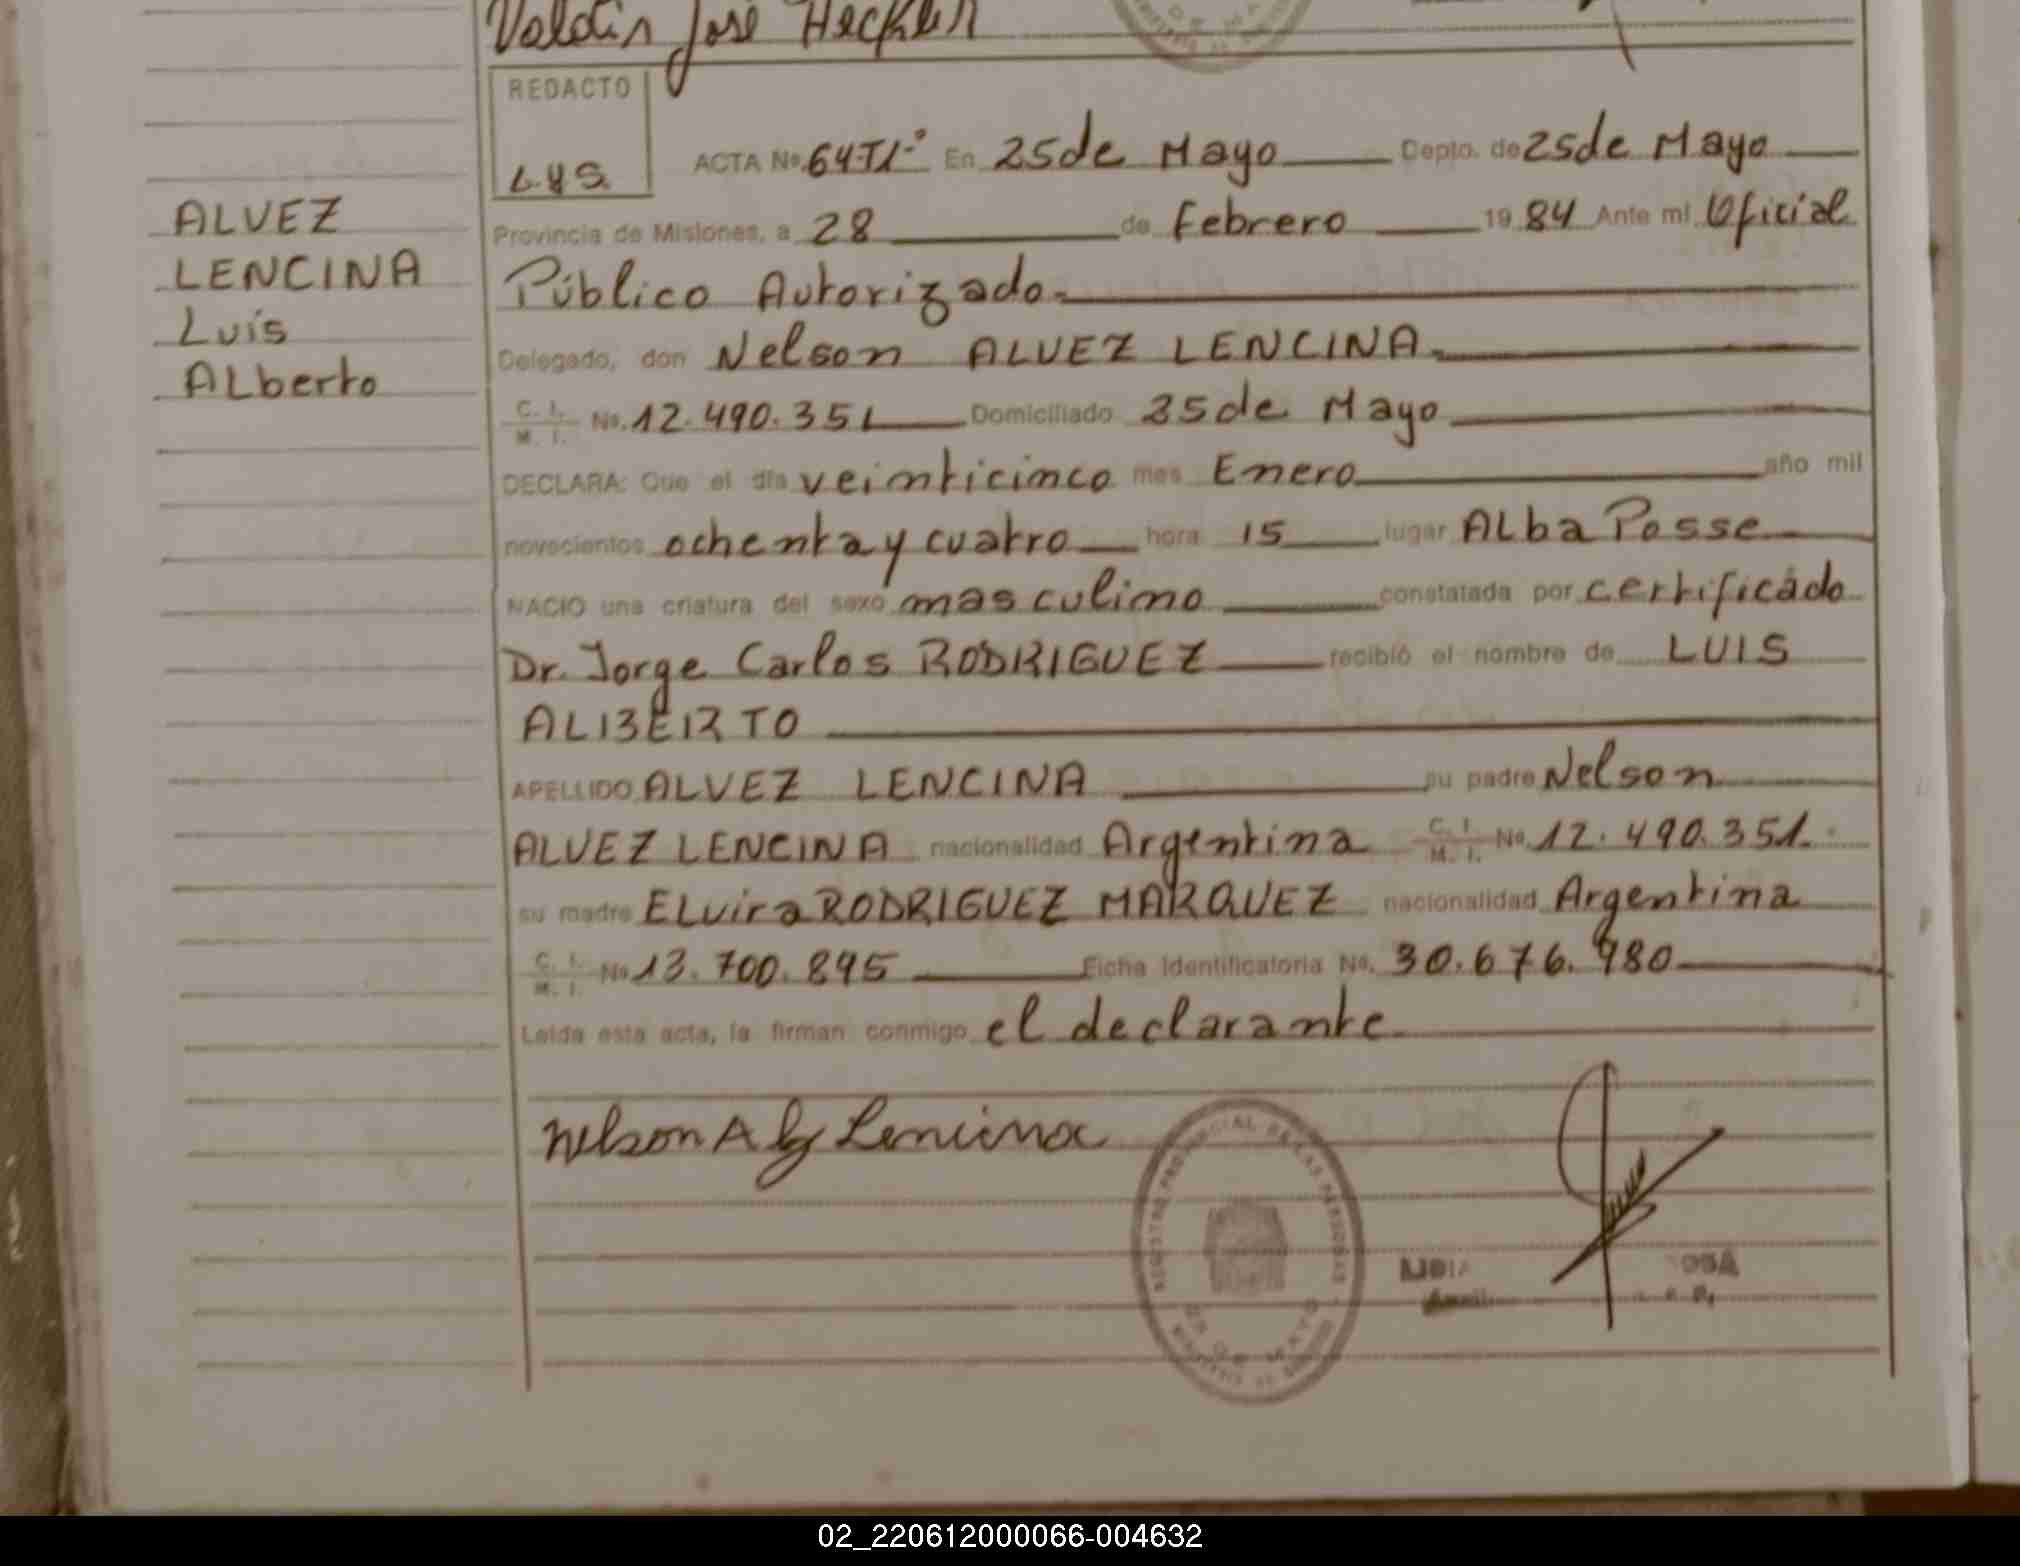 Valdin José Hecklen
REDACTO
L.y.S.
ACTA No. 64-T1-° En 25 de Mayo Depto. de 25 de Mayo
ALVEZ
LENCINA
Luis
ALberto
Provincia de Misiones, a 28 de Febrero 19 84 Ante mi Oficial
Público Autorizado.
Delegado, don Nelson ALVEZ LENCINA.
C. I. M. I. No. 12.490.351 Domiciliado 25 de Mayo
DECLARA: Que el día veinticinco mes Enero año mil
novecientos ochenta y cuatro hora 15 lugar ALba Posse
NACIO una criatura del sexo masculino constatada por certificádo
Dr. Jorge Carlos RODRIGUEZ recibió el nombre de LUIS
ALBERTO
APELLIDO ALVEZ LENCINA su padre Nelson
ALVEZ LENCINA nacionalidad Argentina C. I. M. I. No. 12.490.351.
su madre ELvira RODRIGUEZ MARQUEZ nacionalidad Argentina
C. I. M. I. No 13.700.895 Ficha Identificatoria No. 30.676.980
Leida esta acta, la firman conmigo el declarante
Nelson Alz Lencina
REGISTRO PROVINCIAL DE LAS PERSONAS
25 DE MAYO
02_220612000066-004632